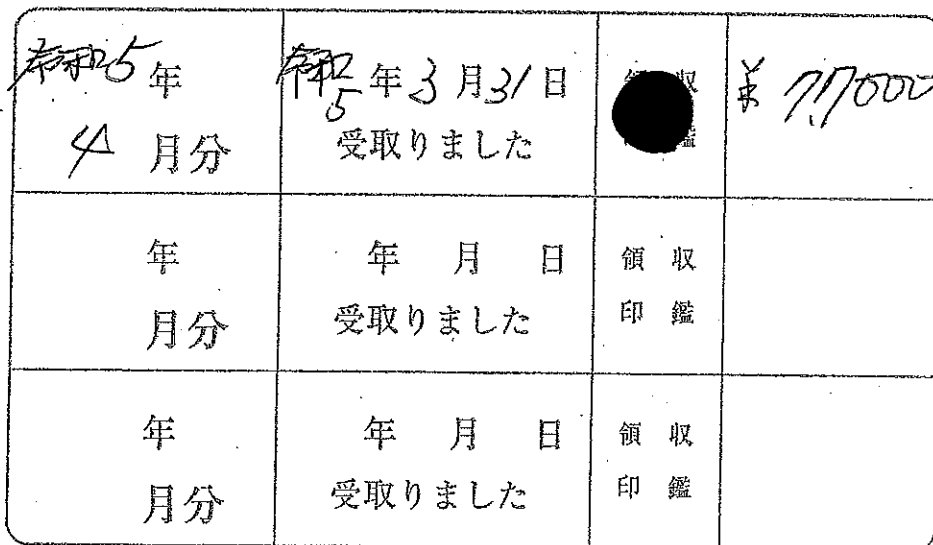 令和5年
4月分
令和5年3月31日
受取りました
領収
鑑
¥77,000
年
月分
年 月 日
受取りました
領収
印鑑
年
月分
年 月 日
受取りました
領収
印鑑